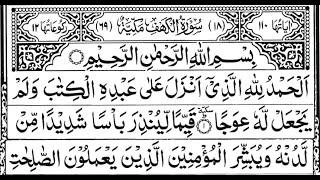 اٰیَاتُهَا ۱۱۰ (۱۸) سُوْرَةُ الْكَهْفِ مَكِّیَّةٌ (۶۹) رُكُوْعَاتُهَا ۱۲
بِسْمِ اللّٰهِ الرَّحْمٰنِ الرَّحِیْمِ
اَلْحَمْدُ لِلّٰهِ الَّذِیْۤ اَنْزَلَ عَلٰى عَبْدِهِ الْكِتٰبَ وَلَمْ
یَجْعَلْ لَّهٗ عِوَجًا قَیِّمًا لِّیُنْذِرَ بَاْسًا شَدِیْدًا مِّنْ
لَّدُنْهُ وَیُبَشِّرَ الْمُؤْمِنِیْنَ الَّذِیْنَ یَعْمَلُوْنَ الصّٰلِحٰتِ